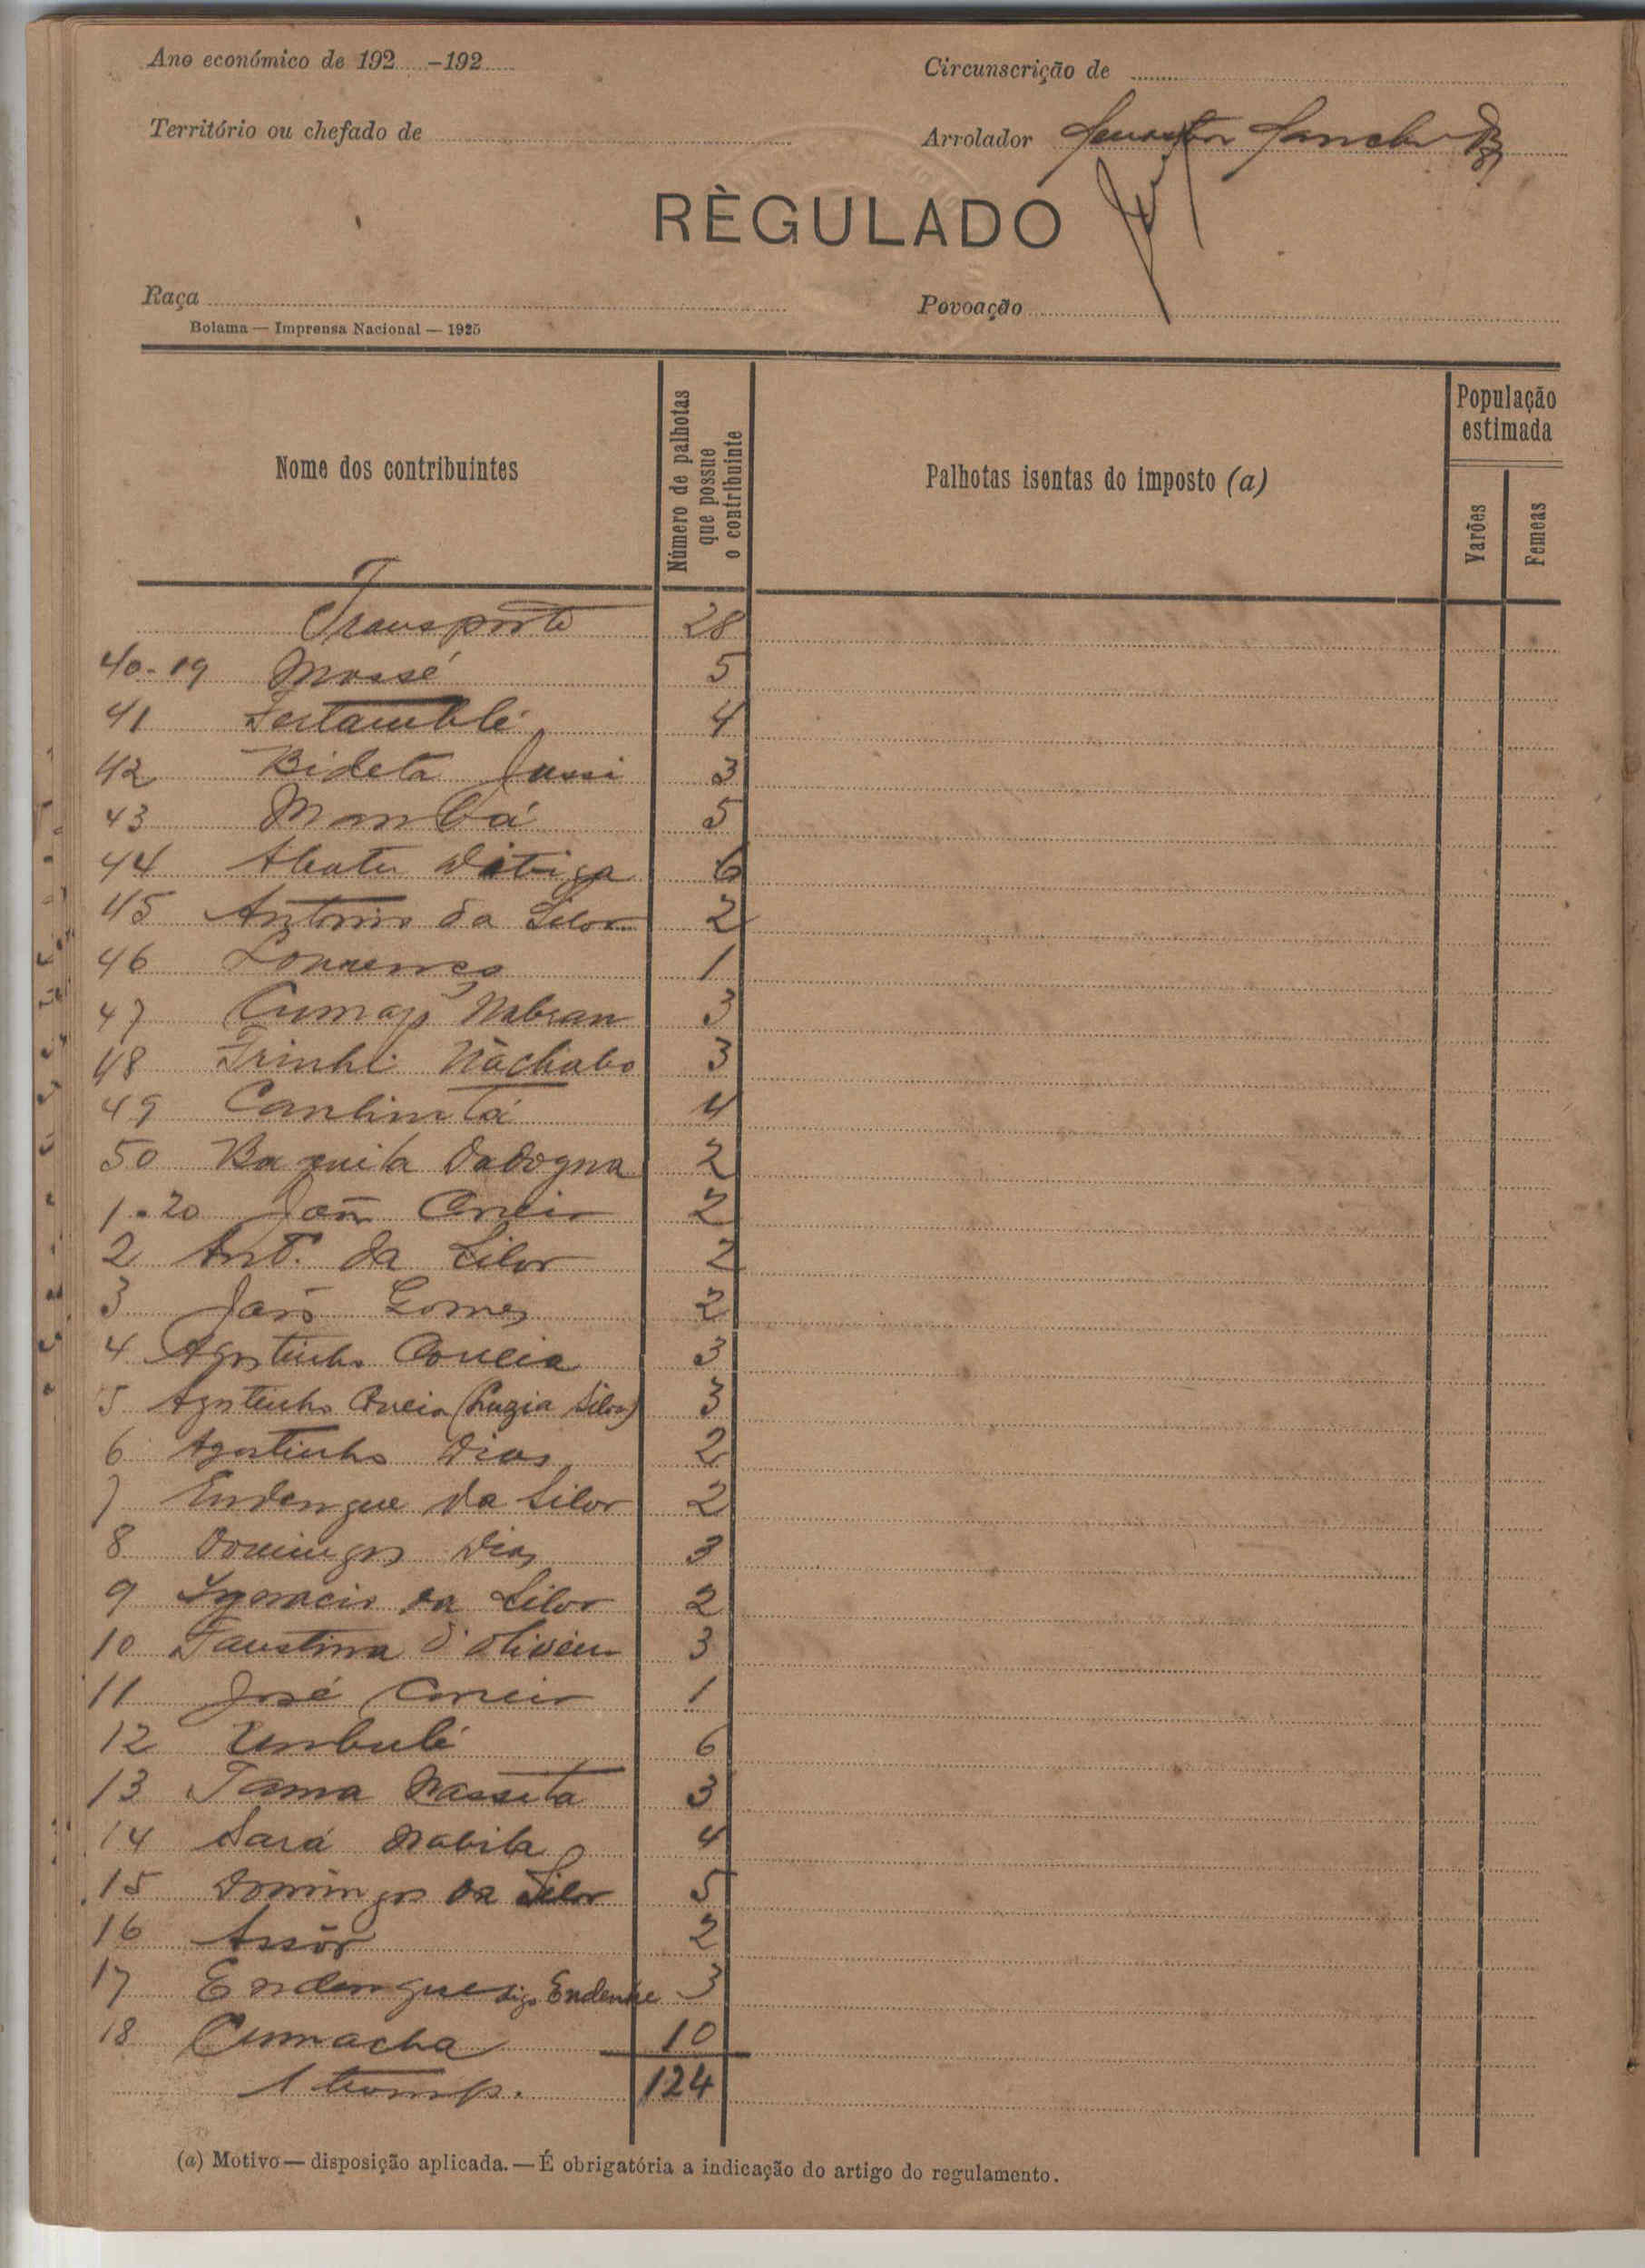 Ano económico de 192 -192
Circunscrição de
Território ou chefado de
Arrolador
RÈGULADO
Raça
Povoação
Bolama — Imprensa Nacional — 1925
Nome dos contribuintes
Número de palhotas que possue o contribuinte
Palhotas isentas do imposto (a)
População estimada
Varões
Femeas
Transporte 28
40-19 Mossé 5
41 4
42 Bideta 3
43 Mombá 5
44 6
45 Antonio da Silva 2
46 Lourenço 1
47 Nabran 3
48 Nachabo 3
49 4
50 2
1-20 João Correia 2
2 Ant.º da Silva 2
3 João Gomes 2
4 Agostinho Correia 3
5 Agostinho Correia (Silva) 3
6 Agostinho Dias 2
7 Endengue da Silva 2
8 Domingos Dias 3
9 Ignacio da Silva 2
10 Faustina d'Oliveira 3
11 José Correia 1
12 Umbulé 6
13 Tama Nasseta 3
14 Sará Nabita 4
15 Domingos da Silva 5
16 2
17 Endengue digo Endenhe 3
18 Cumacha 10
A transp. 124
(a) Motivo — disposição aplicada. — É obrigatória a indicação do artigo do regulamento.